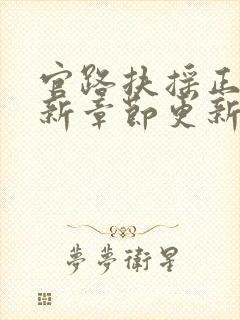 官路扶摇正
新章節更新
夢夢衛星